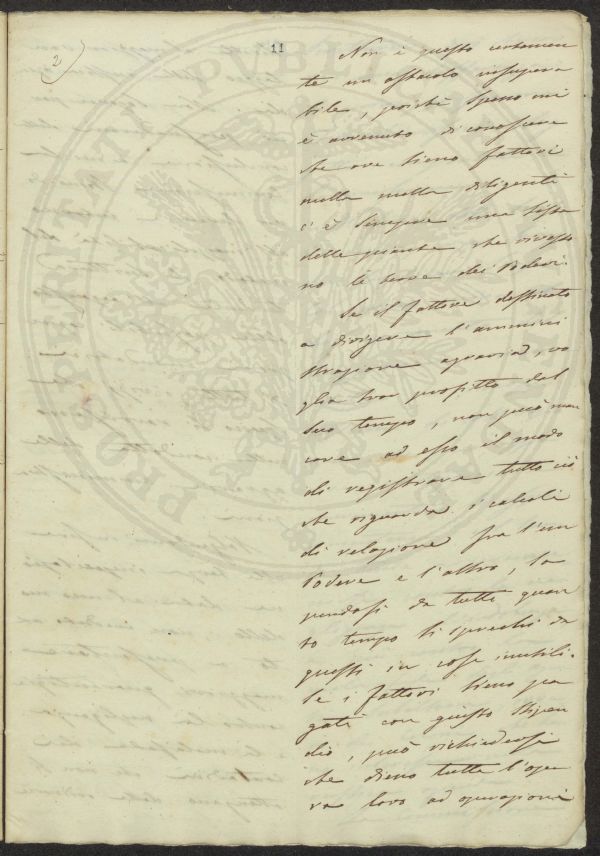 2
11
Non è questo certamen
te un ostacolo insupera
bile, poichè spesso mi
è avvenuto di conoscere
che ove sieno fattori
nulla nulla diligenti
c'è sempre una lista
delle piante che rivesto
no le terre dei Poderi.
Se il fattore destinato
a dirigere l'ammini
strazione agraria, vo
glia trar profitto del
suo tempo, non può man
care ad esso il modo
di registrare tutto ciò
che riguarda i calcoli
di relazione fra l'un
Podere e l'altro, sa
pendosi da tutti quan
to tempo si sprechi da
questi in cose inutili.
Se i fattori sieno pa
gati con giusto stipen
dio, può richiedersi
che dieno tutta l'ope
ra loro ad operazioni
PROSPERITATI PUBLICAE AUGENDAE